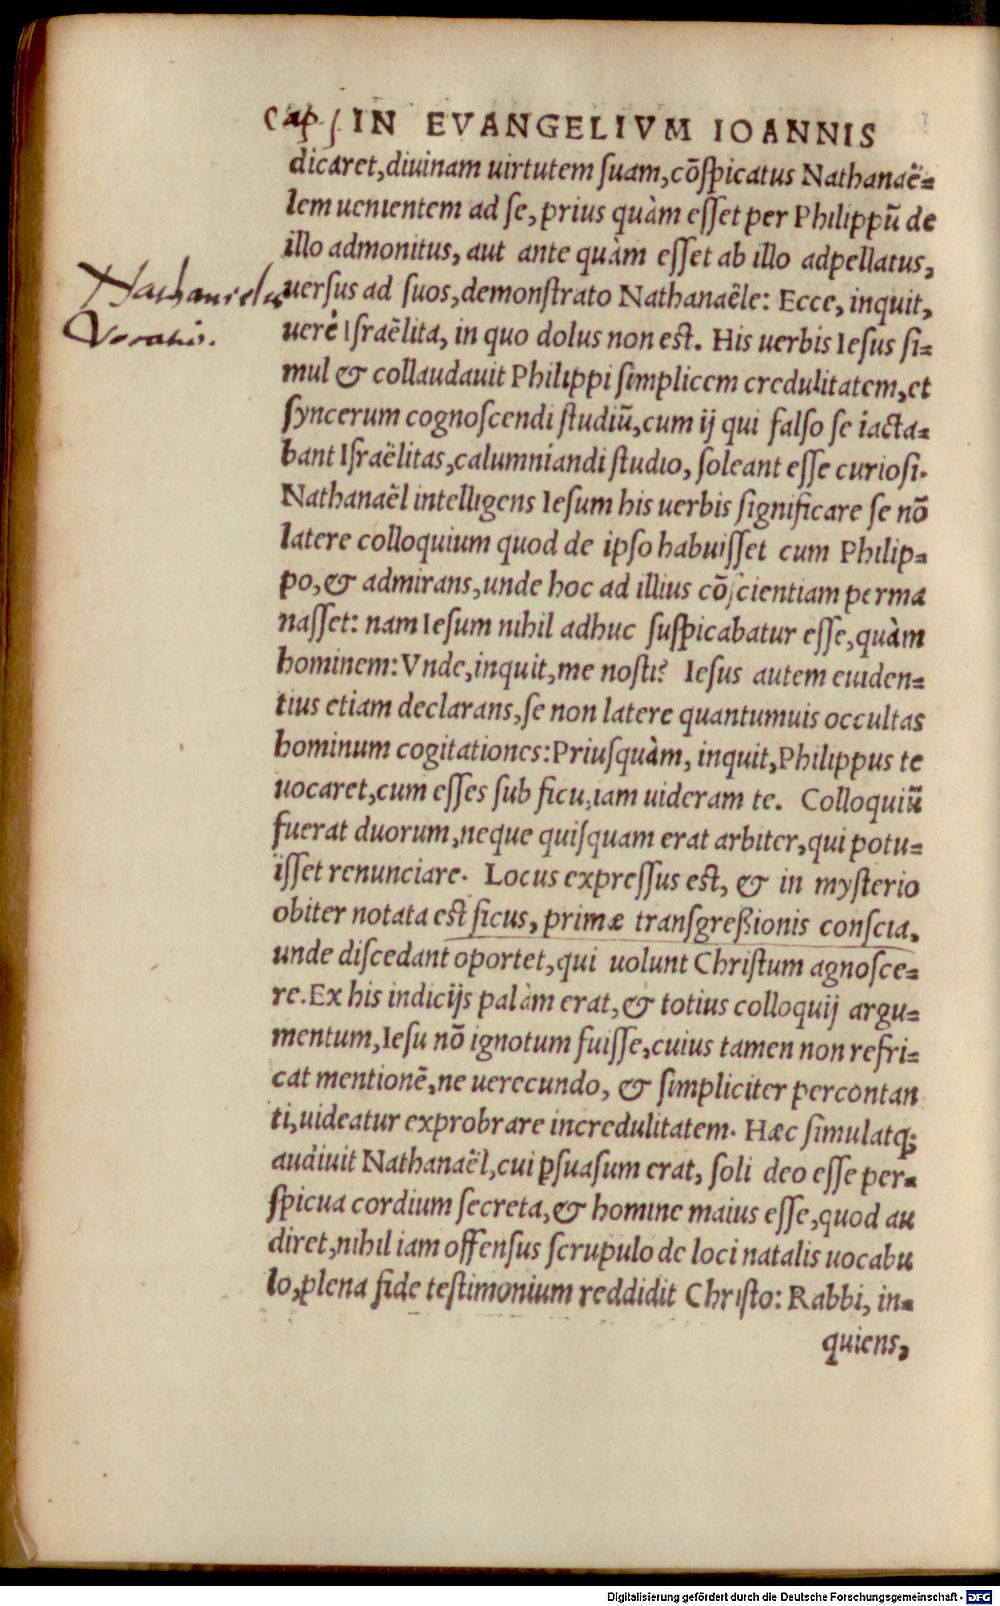 Cap. j IN EVANGELIVM IOANNIS
dicaret,diuinam uirtutem suam,cōspicatus Nathanaë-
lem uenientem ad se, prius quàm esset per Philippū de
illo admonitus, aut ante quàm esset ab illo adpellatus,
uersus ad suos,demonstrato Nathanaële: Ecce, inquit,
uerè Israëlita, in quo dolus non est. His uerbis Iesus si-
mul & collaudauit Philippi simplicem credulitatem,et
syncerum cognoscendi studiū,cum ij qui falso se iacta-
bant Israëlitas,calumniandi studio, soleant esse curiosi.
Nathanaël intelligens Iesum his uerbis significare se nō
latere colloquium quod de ipso habuisset cum Philip-
po,& admirans,unde hoc ad illius cōscientiam perma
nasset: nam Iesum nihil adhuc suspicabatur esse,quàm
hominem: Vnde,inquit,me nosti? Iesus autem euiden-
tius etiam declarans,se non latere quantumuis occultas
hominum cogitationes: Priusquàm, inquit,Philippus te
uocaret,cum esses sub ficu,iam uideram te. Colloquiū
fuerat duorum,neque quisquam erat arbiter,qui potu-
isset renunciare. Locus expressus est, & in mysterio
obiter notata est ficus, primæ transgreßionis conscia,
unde discedant oportet,qui uolunt Christum agnosce-
re. Ex his indicijs palàm erat,& totius colloquij argu-
mentum,Iesu nō ignotum fuisse,cuius tamen non refri-
cat mentionē,ne uerecundo, & simpliciter percontan
ti,uideatur exprobrare incredulitatem. Hæc simulatq;
audiuit Nathanaël,cui ꝑsuasum erat, soli deo esse per-
spicua cordium secreta,& homine maius esse,quod au
diret,nihil iam offensus scrupulo de loci natalis uocabu
lo,plena fide testimonium reddidit Christo: Rabbi, in-
quiens,
Nathanielis
Vocatio.
Digitalisierung gefördert durch die Deutsche Forschungsgemeinschaft - DFG